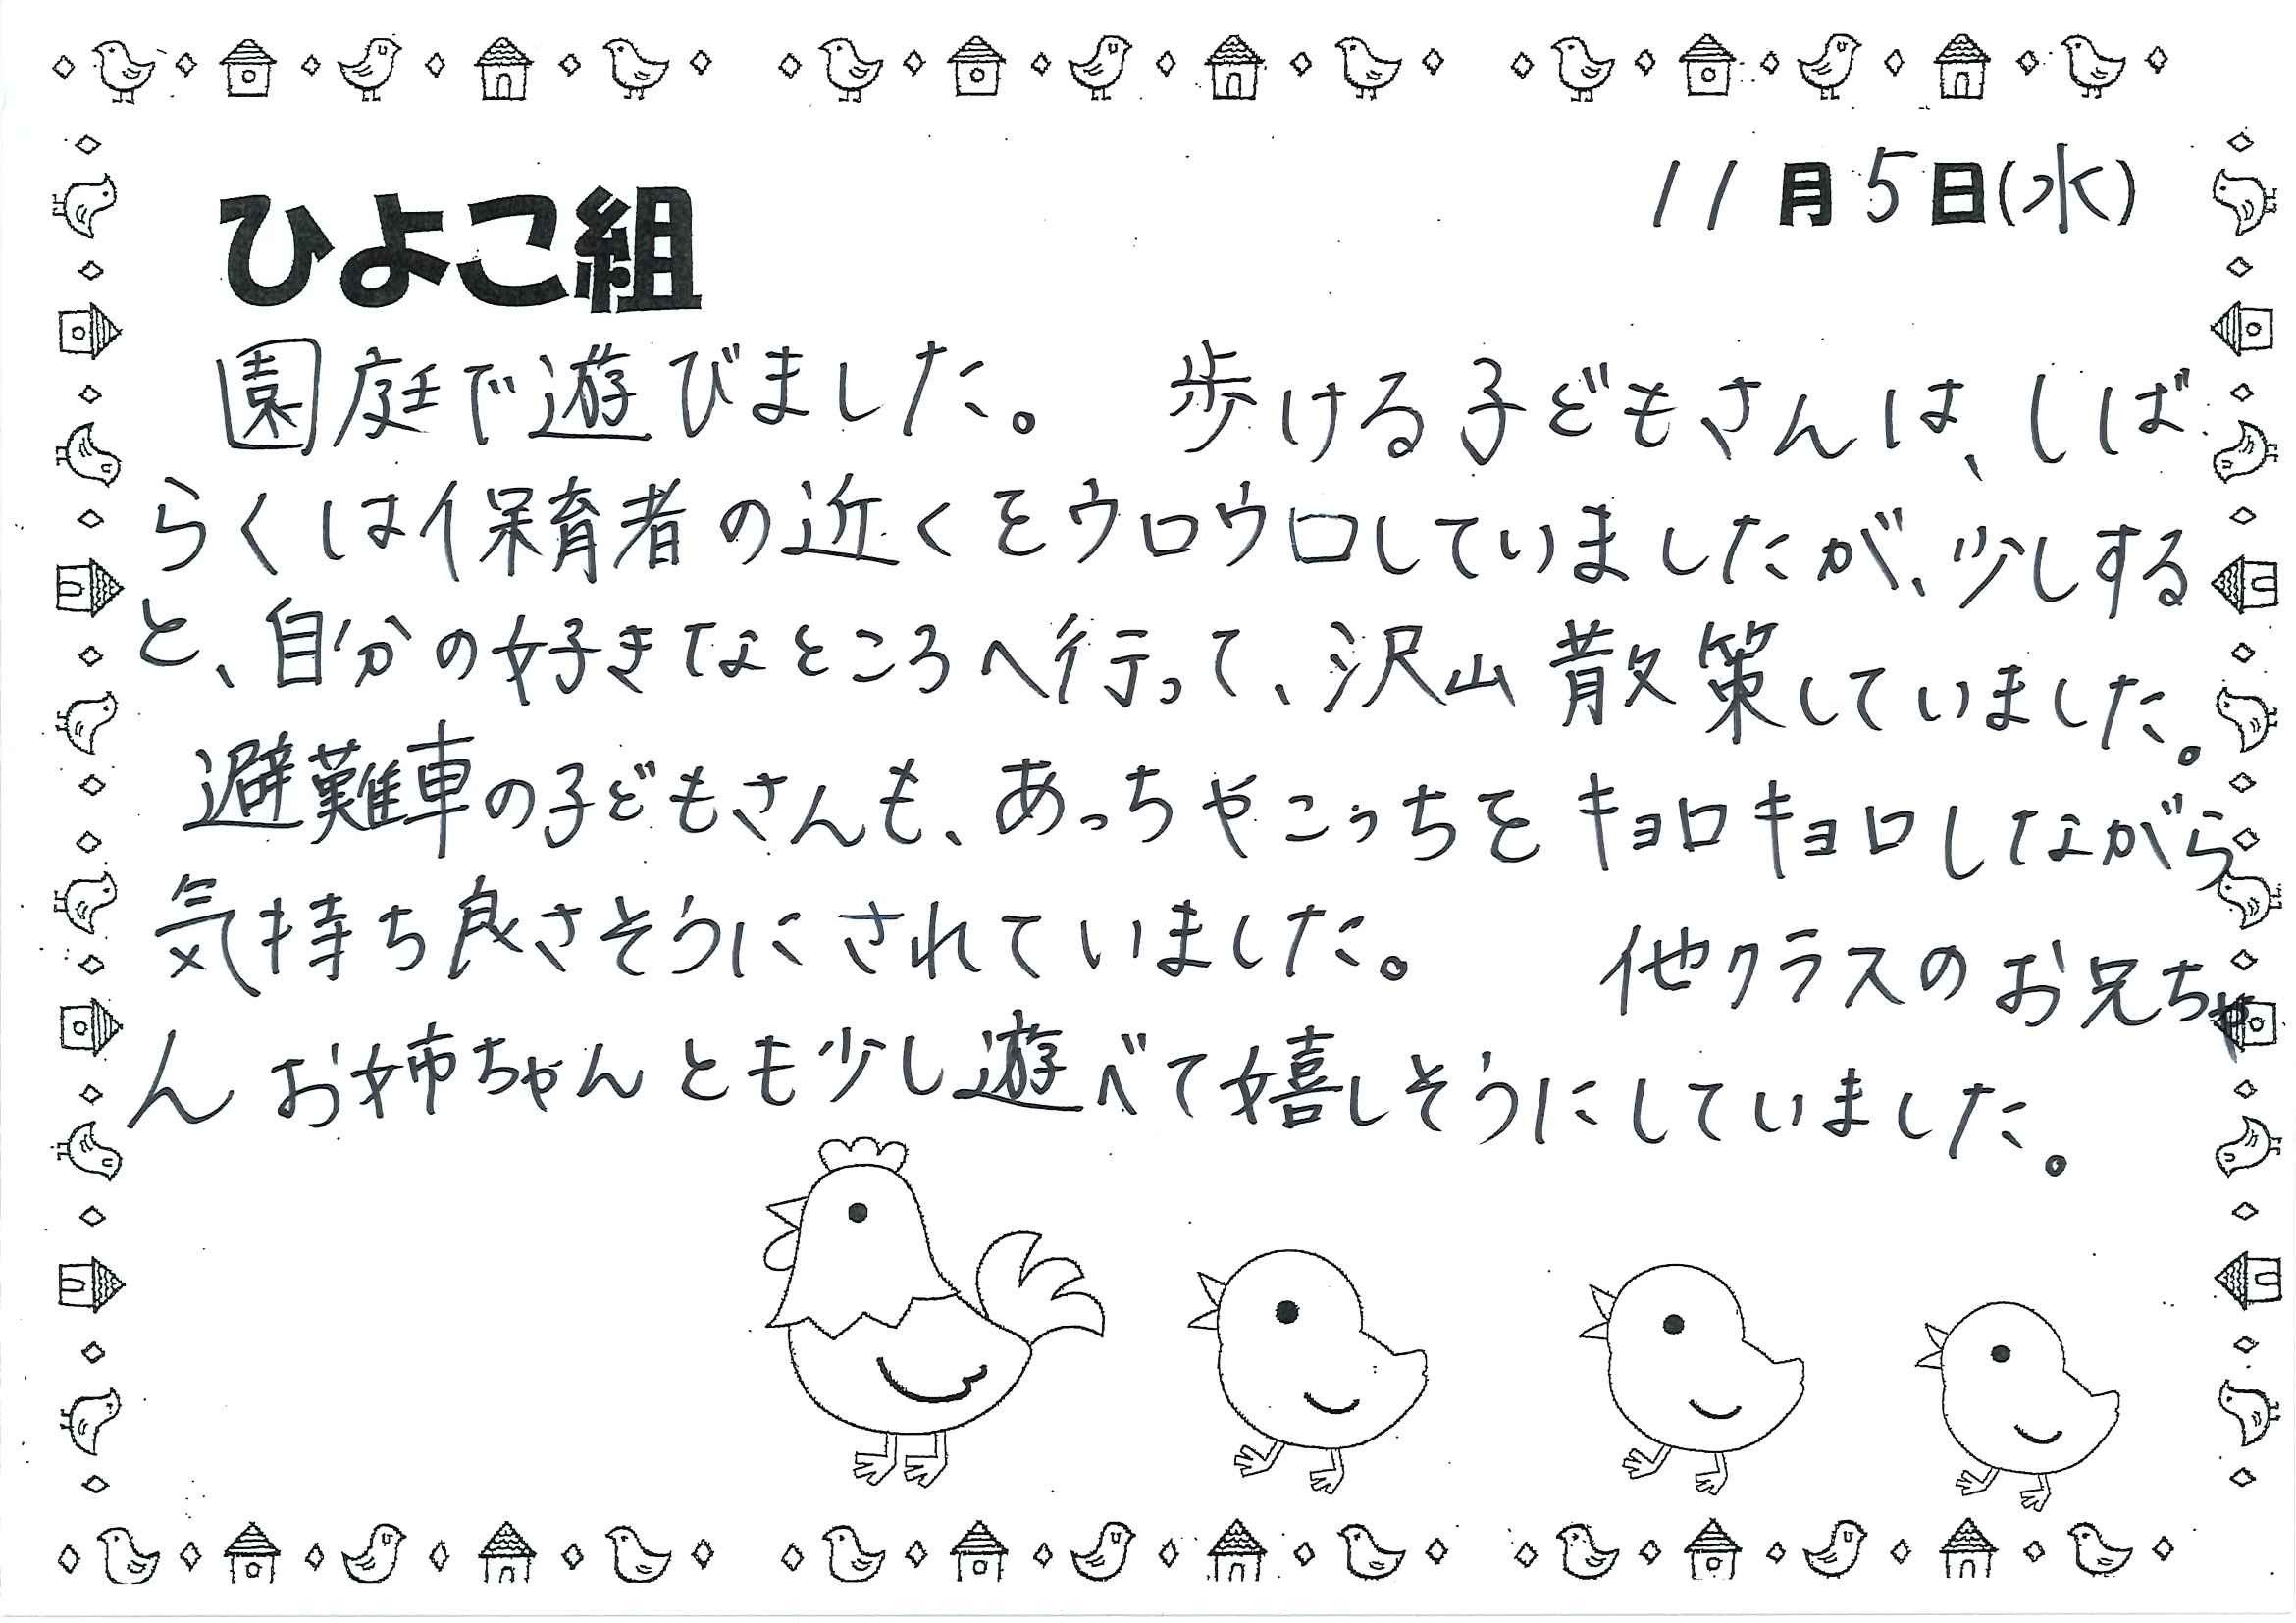 11月5日(水)
ひよこ組
園庭で遊びました。 歩ける子どもさんは、しば
らくは保育者の近くをウロウロしていましたが、少しする
と、自分の好きなところへ行って、沢山散策していました。
避難車の子どもさんも、あっちゃこっちをキョロキョロしながら
気持ち良さそうにされていました。 他クラスのお兄ちゃ
んお姉ちゃんとも少し遊べて嬉しそうにしていました。